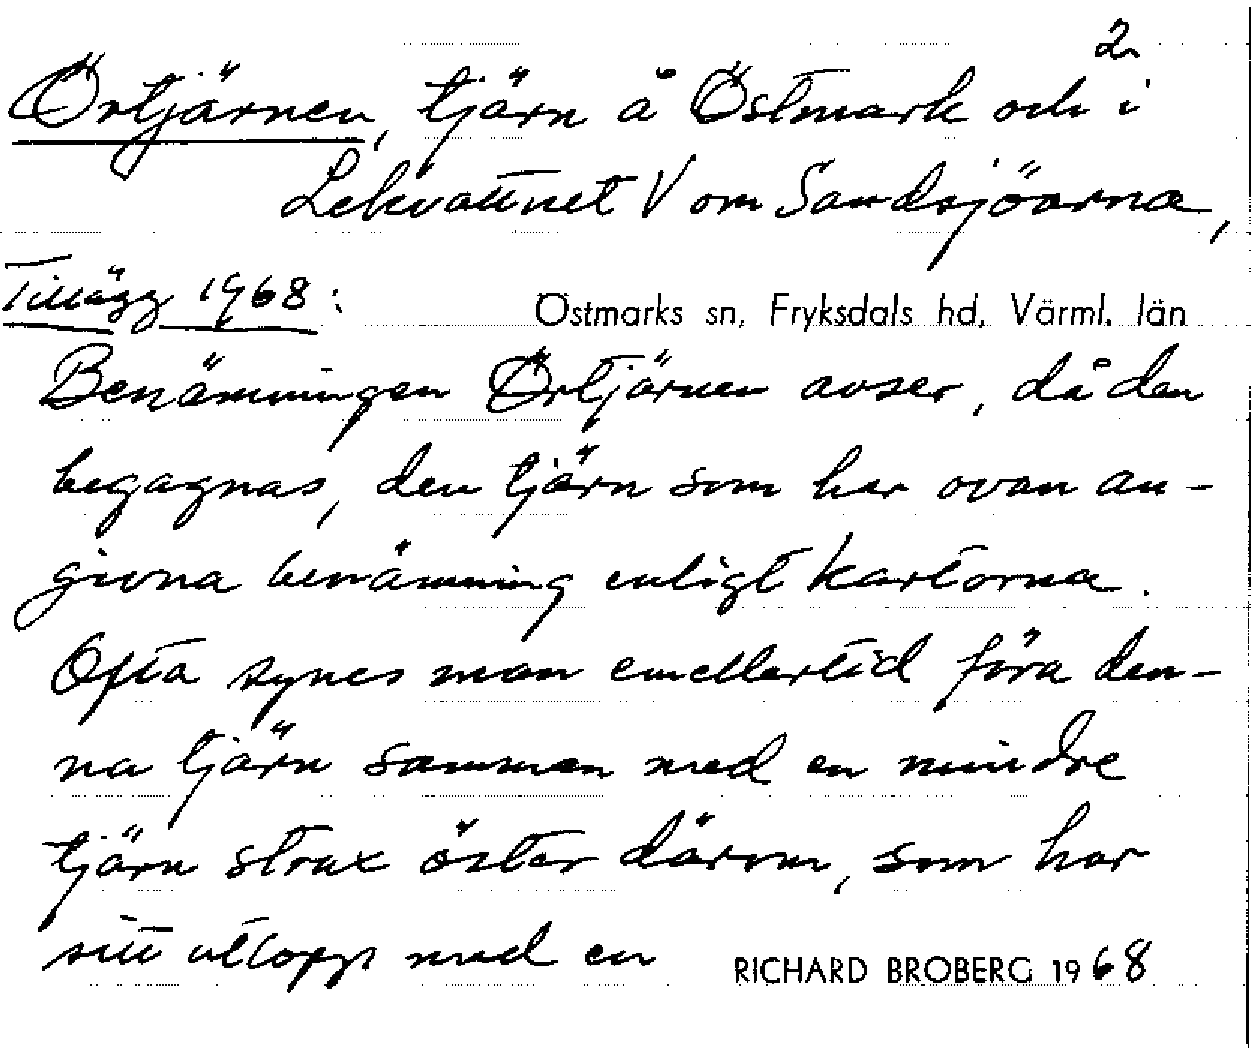 2.
Örtjärnen, tjärn å Östmark och i
Lekvattnet V om Sandsjöarna,
Tillägg 1968:
Östmarks sn, Fryksdals hd, Värml. län
Benämningen Örtjärnen avser, då den
begagnas, den tjärn som har ovan an-
givna benämning enligt kartorna.
Ofta synes man emellertid föra den-
na tjärn samman med en mindre
tjärn strax öster därom, som har
sitt utlopp med en
RICHARD BROBERG 1968